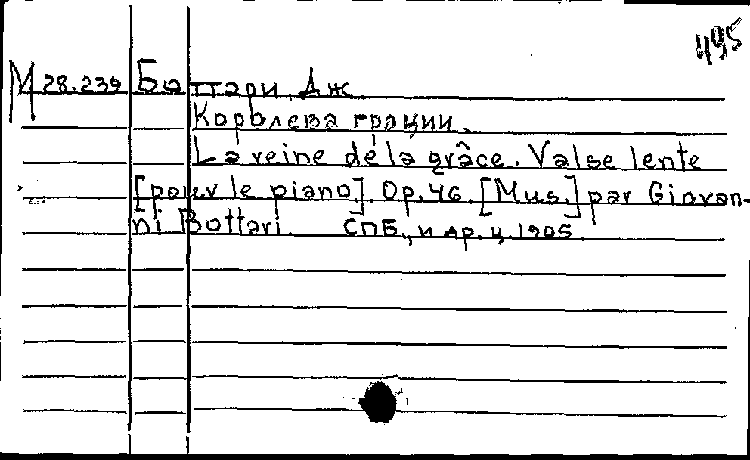 495
М 28.239 Боттари, Дж.
Королева грации.
La reine de la grâce. Valse lente
[pour le piano]. Op. 46. [Mus.] par Giovan-
ni Bottari. СПБ., и др. ц. 1905.